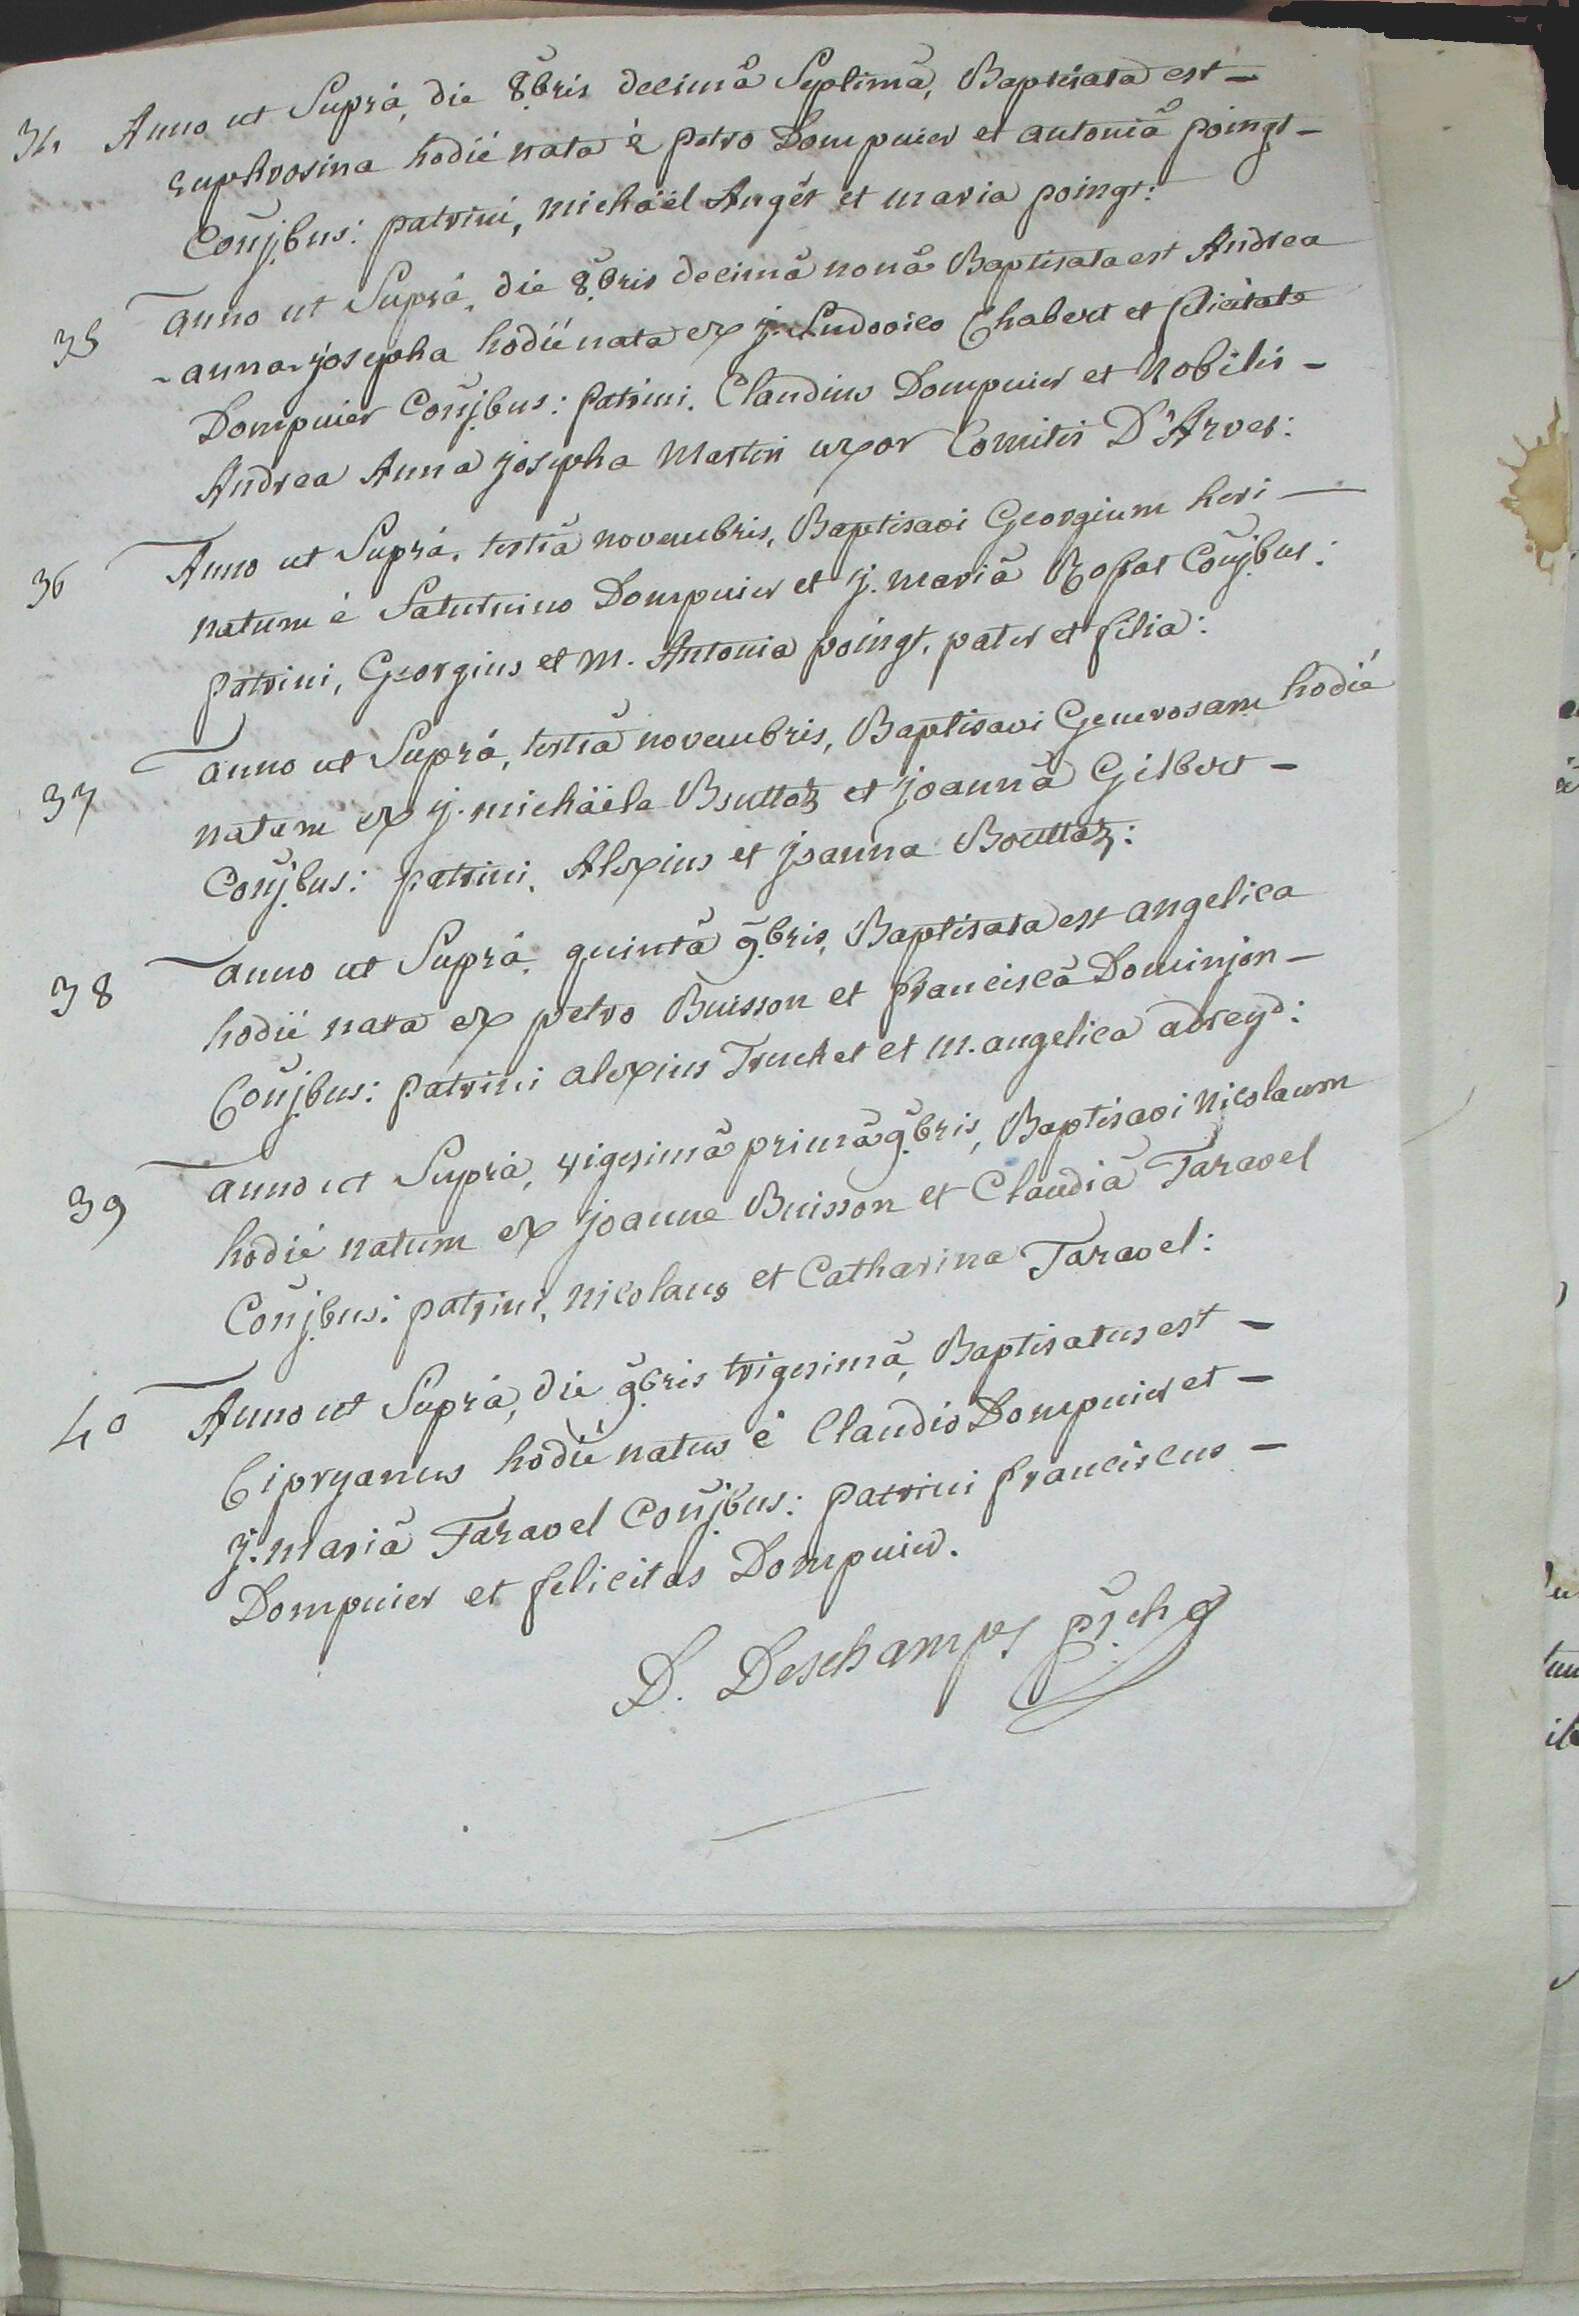 34 Anno ut Suprà, die 8bris decimâ Septimâ, Baptisata est -
Euphrosina hodiè nata è petro Dompnier et antoniâ poingt -
Conjbus: patrini, michäel Anger et maria poingt:
35 Anno ut Suprà, die 8bris decimâ nonâ Baptisata est Andrea
- anna josepha hodiè nata ex j. Ludovico Chabert et felicitate
Dompnier Conjbus: patrini. Claudius Dompnier et Nobilis -
Andrea Anna josepha Martin uxor Comitis D'Arves:
36 Anno ut Suprà, tertiâ novembris, Baptisavi Georgium heri -
natum è Saturnino Dompnier et j. mariâ Rostas Conjbus:
patrini, Georgius et M. Antonia poingt. pater et filia:
37 Anno ut Suprà, tertiâ novembris, Baptisavi Generosam hodiè
natam ex j. michäele Bouttaz et joannâ Gilbert -
Conjbus: patrini, Alexius et joanna Bouttaz:
38 Anno ut Suprà, quintâ 9bris, Baptisata est angelica
hodiè nata ex petro Buisson et franciscâ Dominjon -
Conjbus: patrini alexius Truchet et m. angelica adreyd:
39 Anno ut Suprà, vigesimâ primâ 9bris, Baptisavi nicolaum
hodiè natum ex joanne Buisson et Claudiâ Taravel
Conjbus: patrini, nicolaus et Catharina Taravel:
40 Anno ut Suprà, die 9bris trigesimâ, Baptisatus est -
Cipryanus hodiè natus è Claudio Dompnier et -
j. mariâ Taravel Conjbus: patrini franciscus -
Dompnier et felicitas Dompnier.
D. Deschamps pr. ch